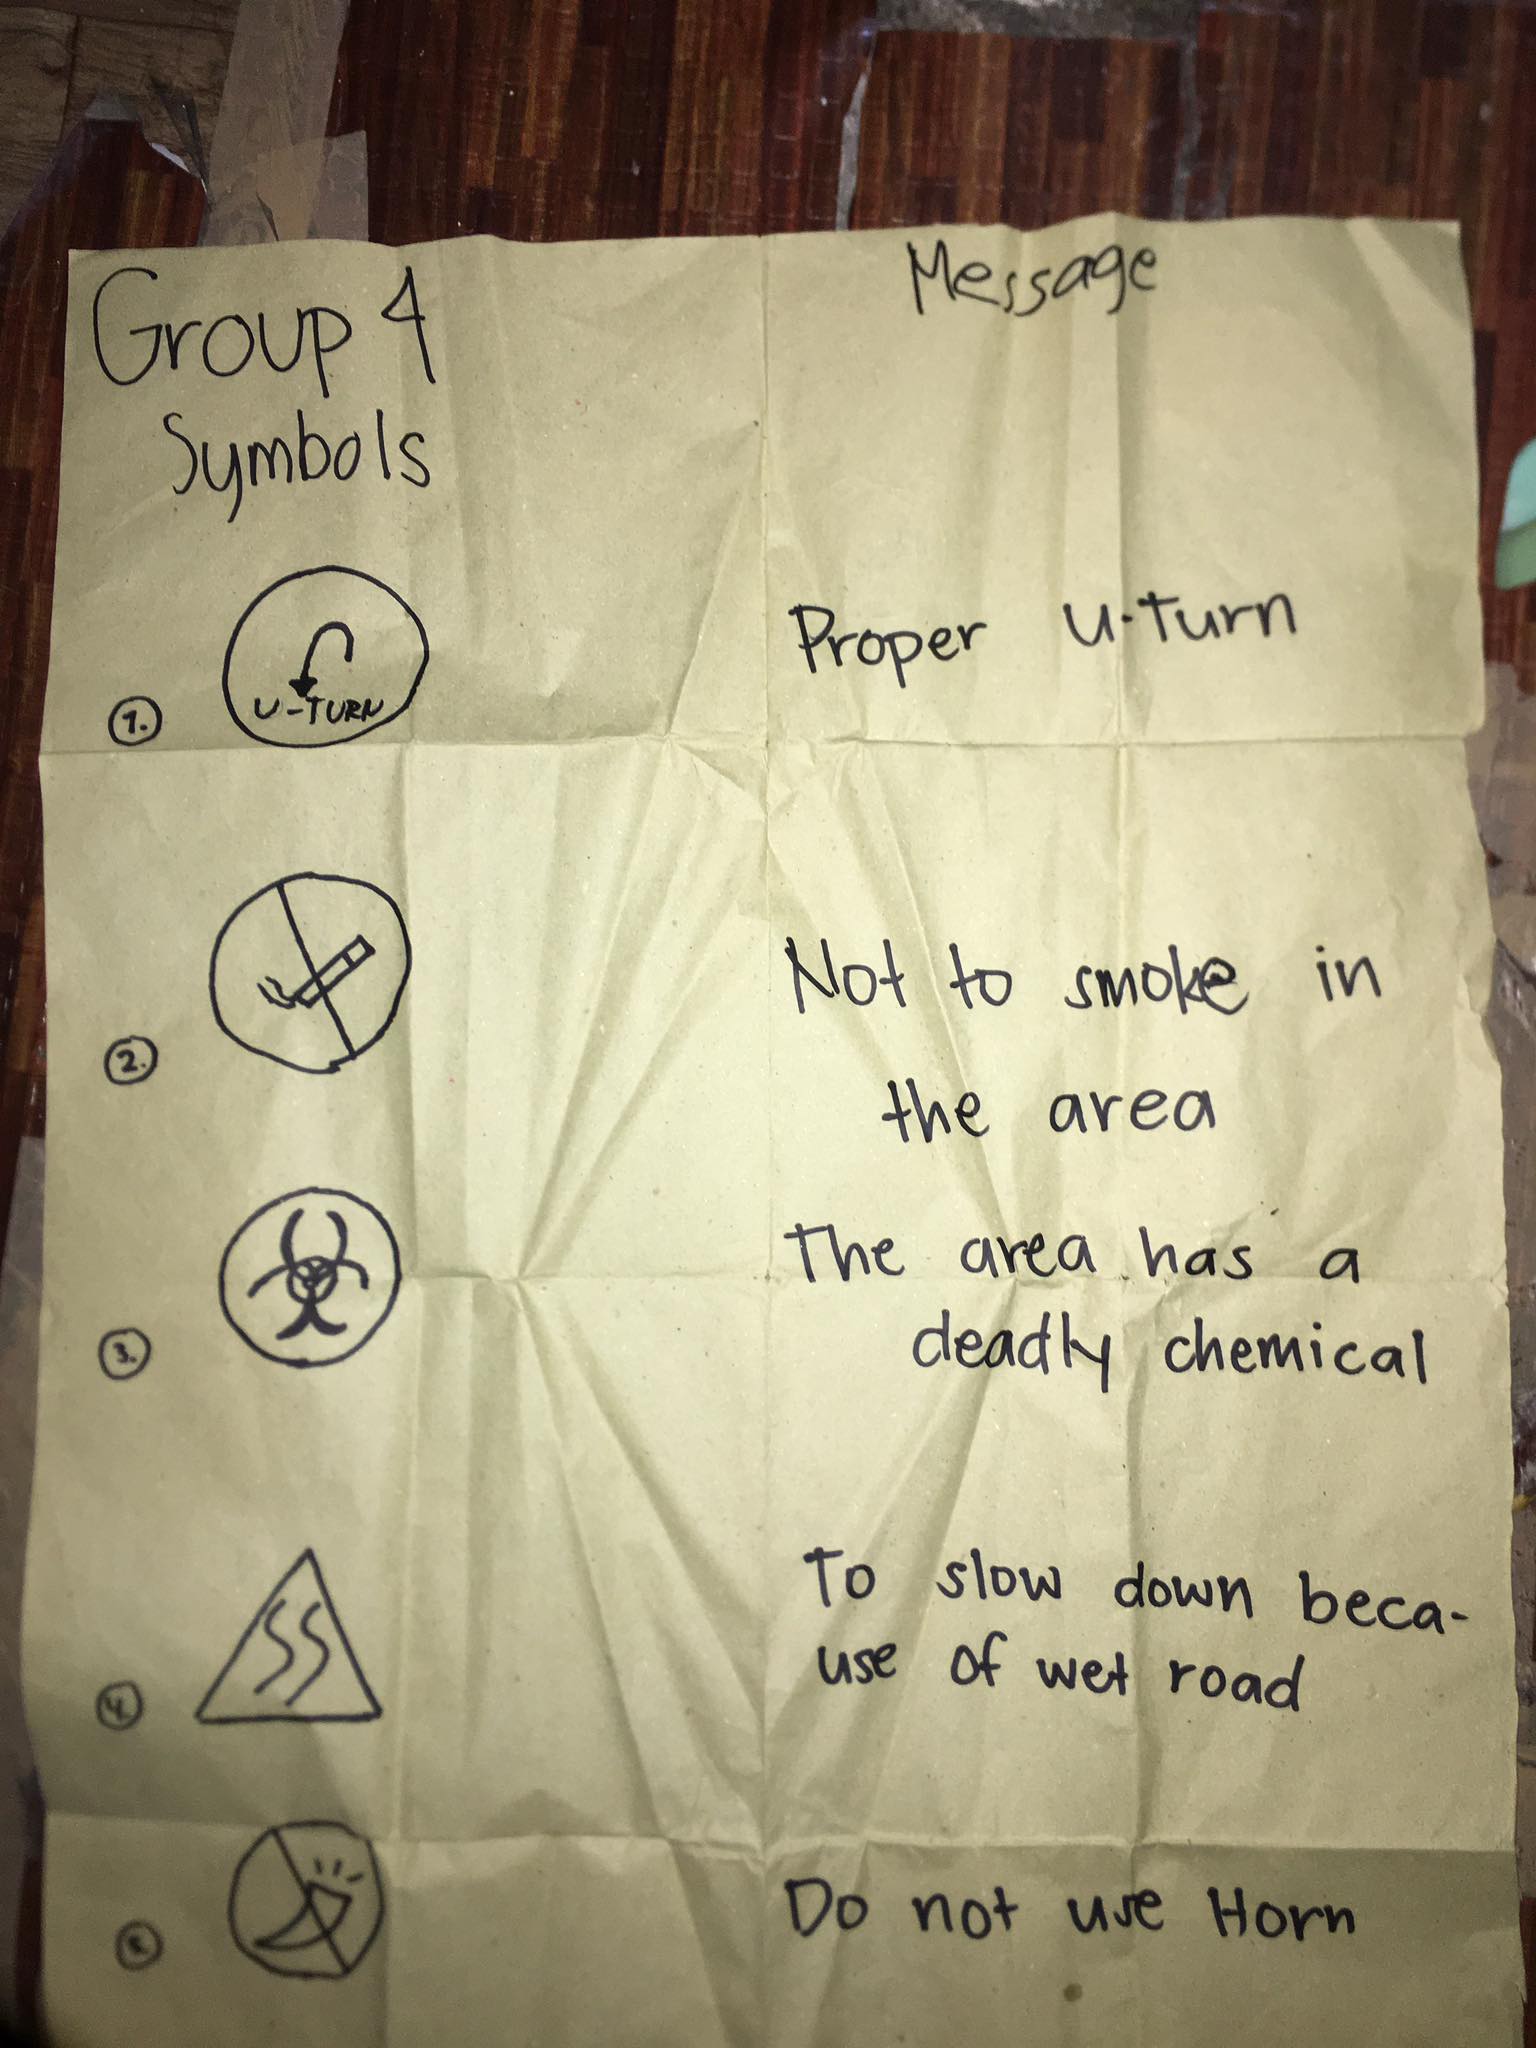 Group 4
Message
Symbols
U-TURN
1.
Proper U-Turn
2.
Not to smoke in
the area
3.
The area has a
deadly chemical
4.
To slow down beca-
use of wet road
Do not use Horn